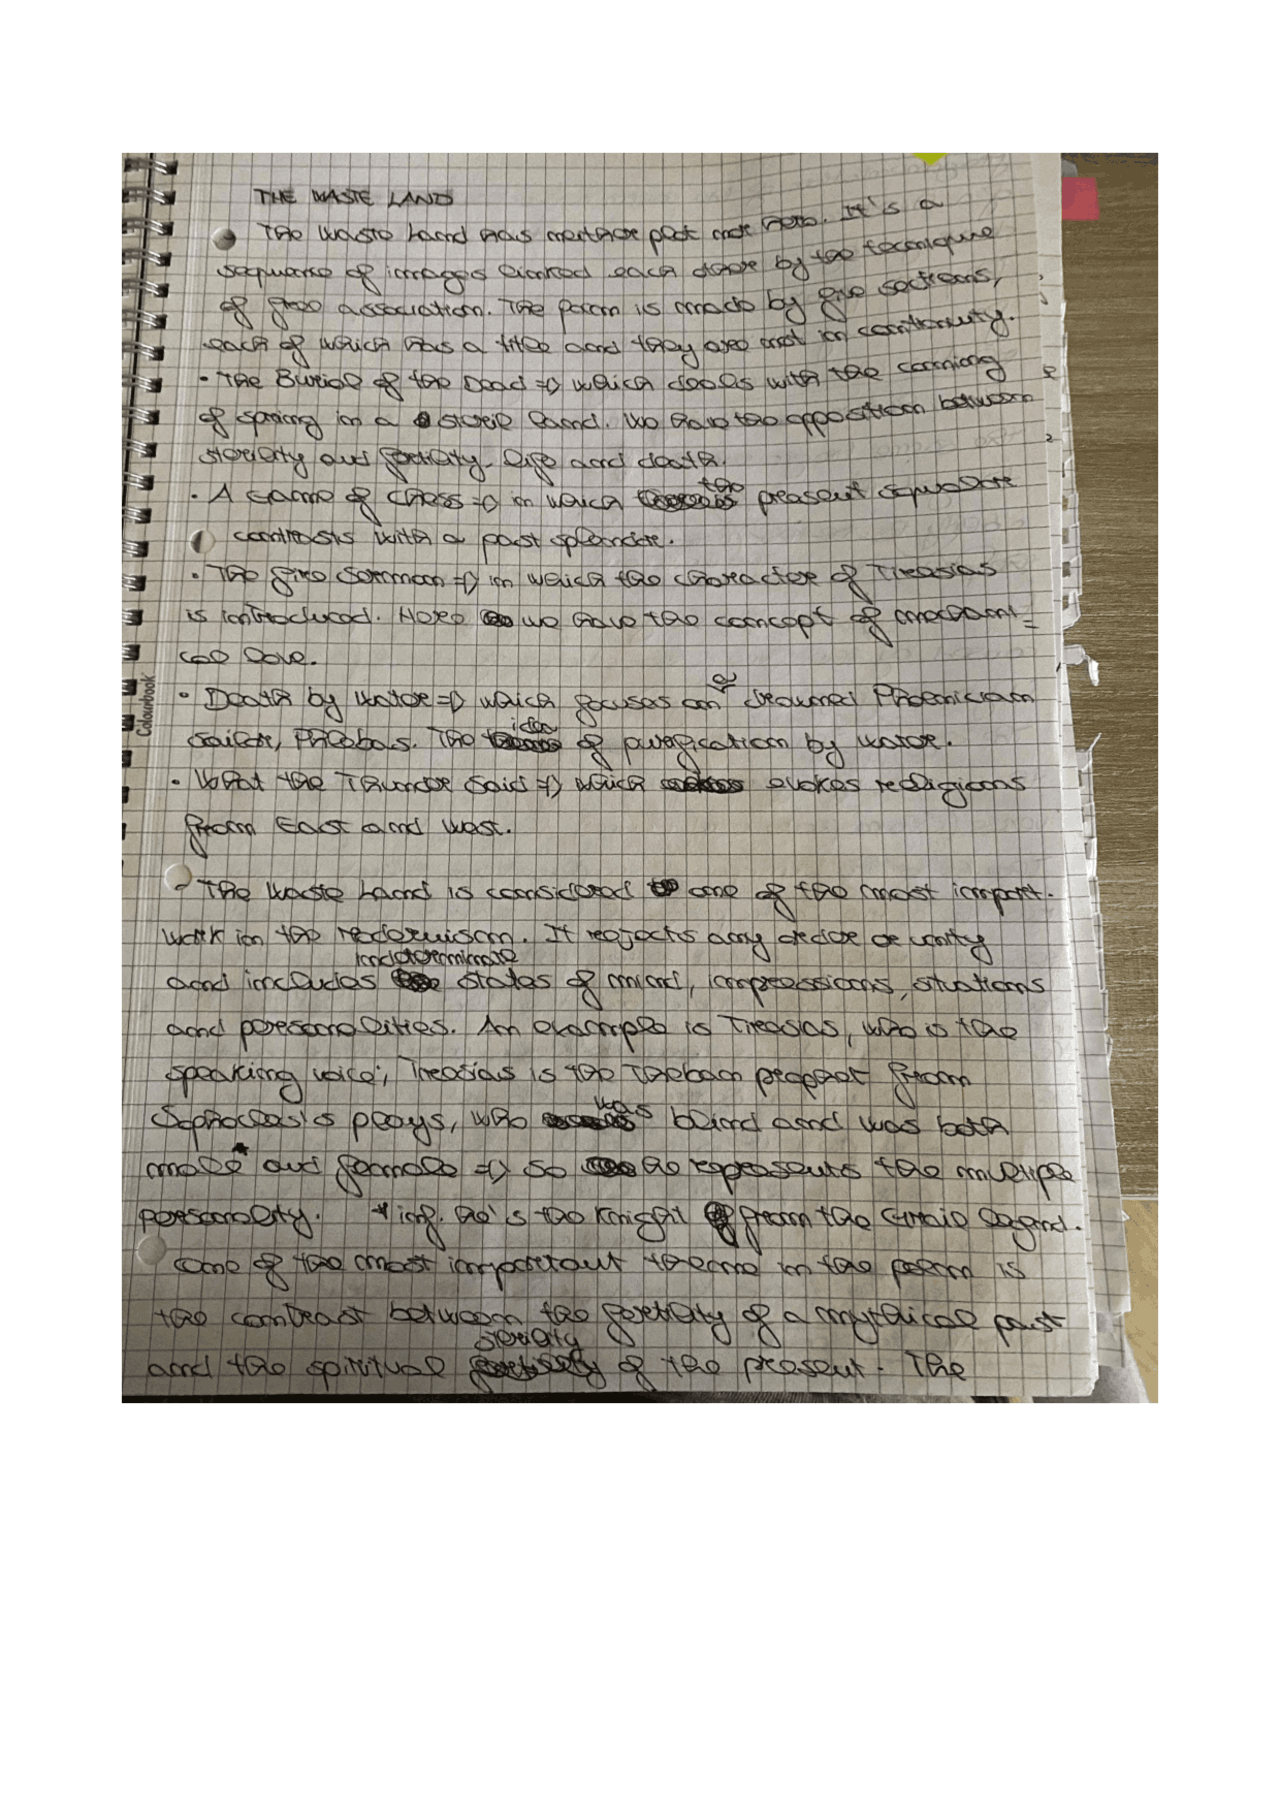 THE WASTE LAND
The Waste Land has neither plot nor hero. It's a
sequence of images linked each other by the technique
of free association. The poem is made by five sections,
each of which has a title and they are not in continuity.
• The Burial of the Dead => which deals with the coming
of spring in a steril land. We have the opposition between
sterility and fertility - life and death.
• A Game of Chess => in which the present squalore
contrasts with a past splendor.
• The fire sermon => in which the character of Tiresias
is introduced. Here we have the concept of mechani=
cal love.
• Death by water => which focuses on a drowned Phoenician
sailor, Phlebas. The idea of purification by water.
• What the Thunder Said => which evokes religions
from East and West.
- The Waste Land is considered one of the most import.
work in the modernism. It rejects any order or unity
and includes indeterminate states of mind, impressions, situations
and personalities. An example is Tiresias, who is the
speaking voice; Tiresias is the Theban prophet from
Sophocles's plays, who was blind and was both
male* and female => so he represents the multiple
personality. * inf. he's the Knight from the Grail legend.
One of the most important theme in the poem is
the contrast between the fertility of a mythical past
and the spiritual sterility of the present. The
Colourbook